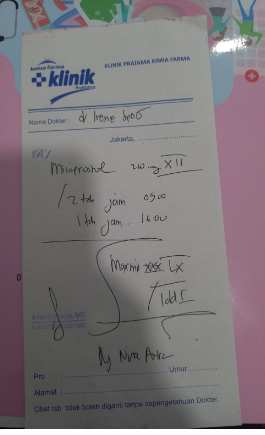 kimia farma
klinik
Pratama
KLINIK PRATAMA KIMIA FARMA
Nama Dokter : dr Irene SpOG
Jakarta,
R/
Misoprostol 200 mg XII
/ 2 tab jam 0900
1 tab jam 1600
IX
1 dd I
Ny
Pro : Umur
Alamat :
Obat tsb. tidak boleh diganti tanpa sepengetahuan Dokter.